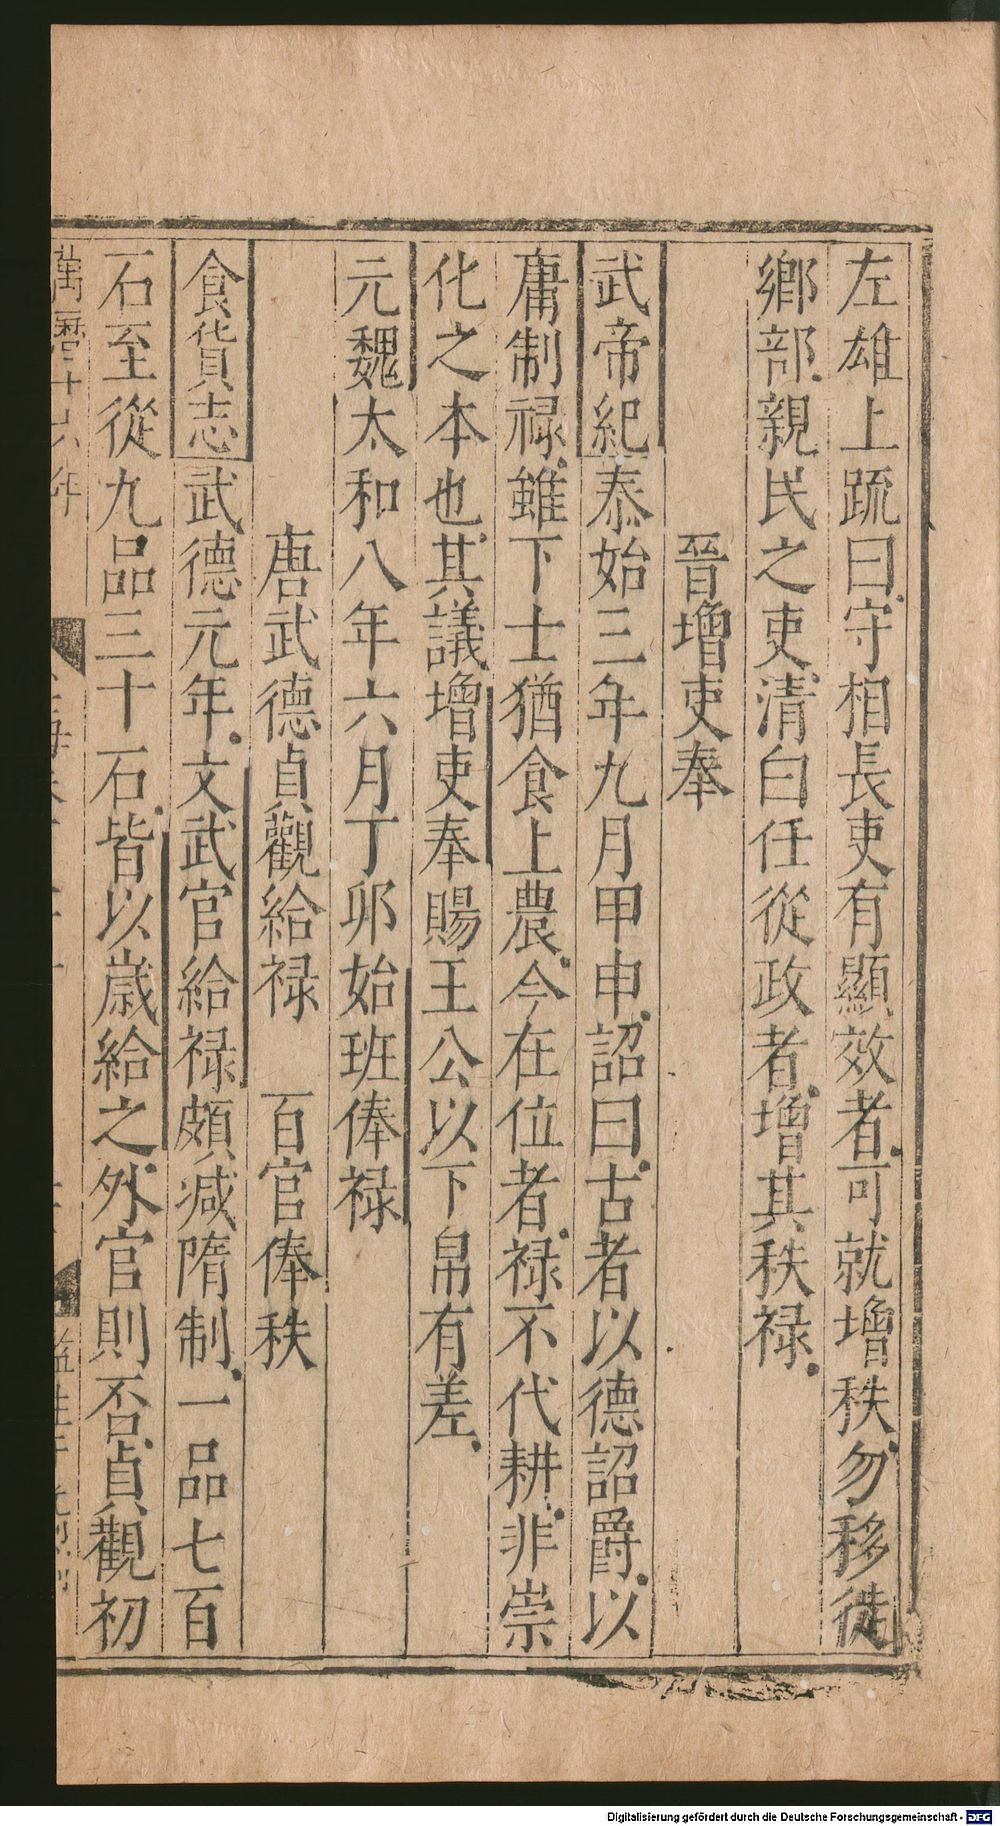 左雄上疏曰守相長吏有顯效者可就增秩勿移徙
鄉部親民之吏清白任從政者增其秩禄
晉增吏奉
武帝紀泰始三年九月甲申詔曰古者以德詔爵以
庸制禄雖下士猶食上農今在位者禄不代耕非崇
化之本也其議增吏奉賜王公以下帛有差
元魏太和八年六月丁卯始班俸禄
唐武德貞觀給禄　百官俸秩
食貨志武德元年文武官給禄頗減隋制一品七百
石至從九品三十石皆以歲給之外官則否貞觀初
萬曆十六年
Digitalisierung gefördert durch die Deutsche Forschungsgemeinschaft - DFG